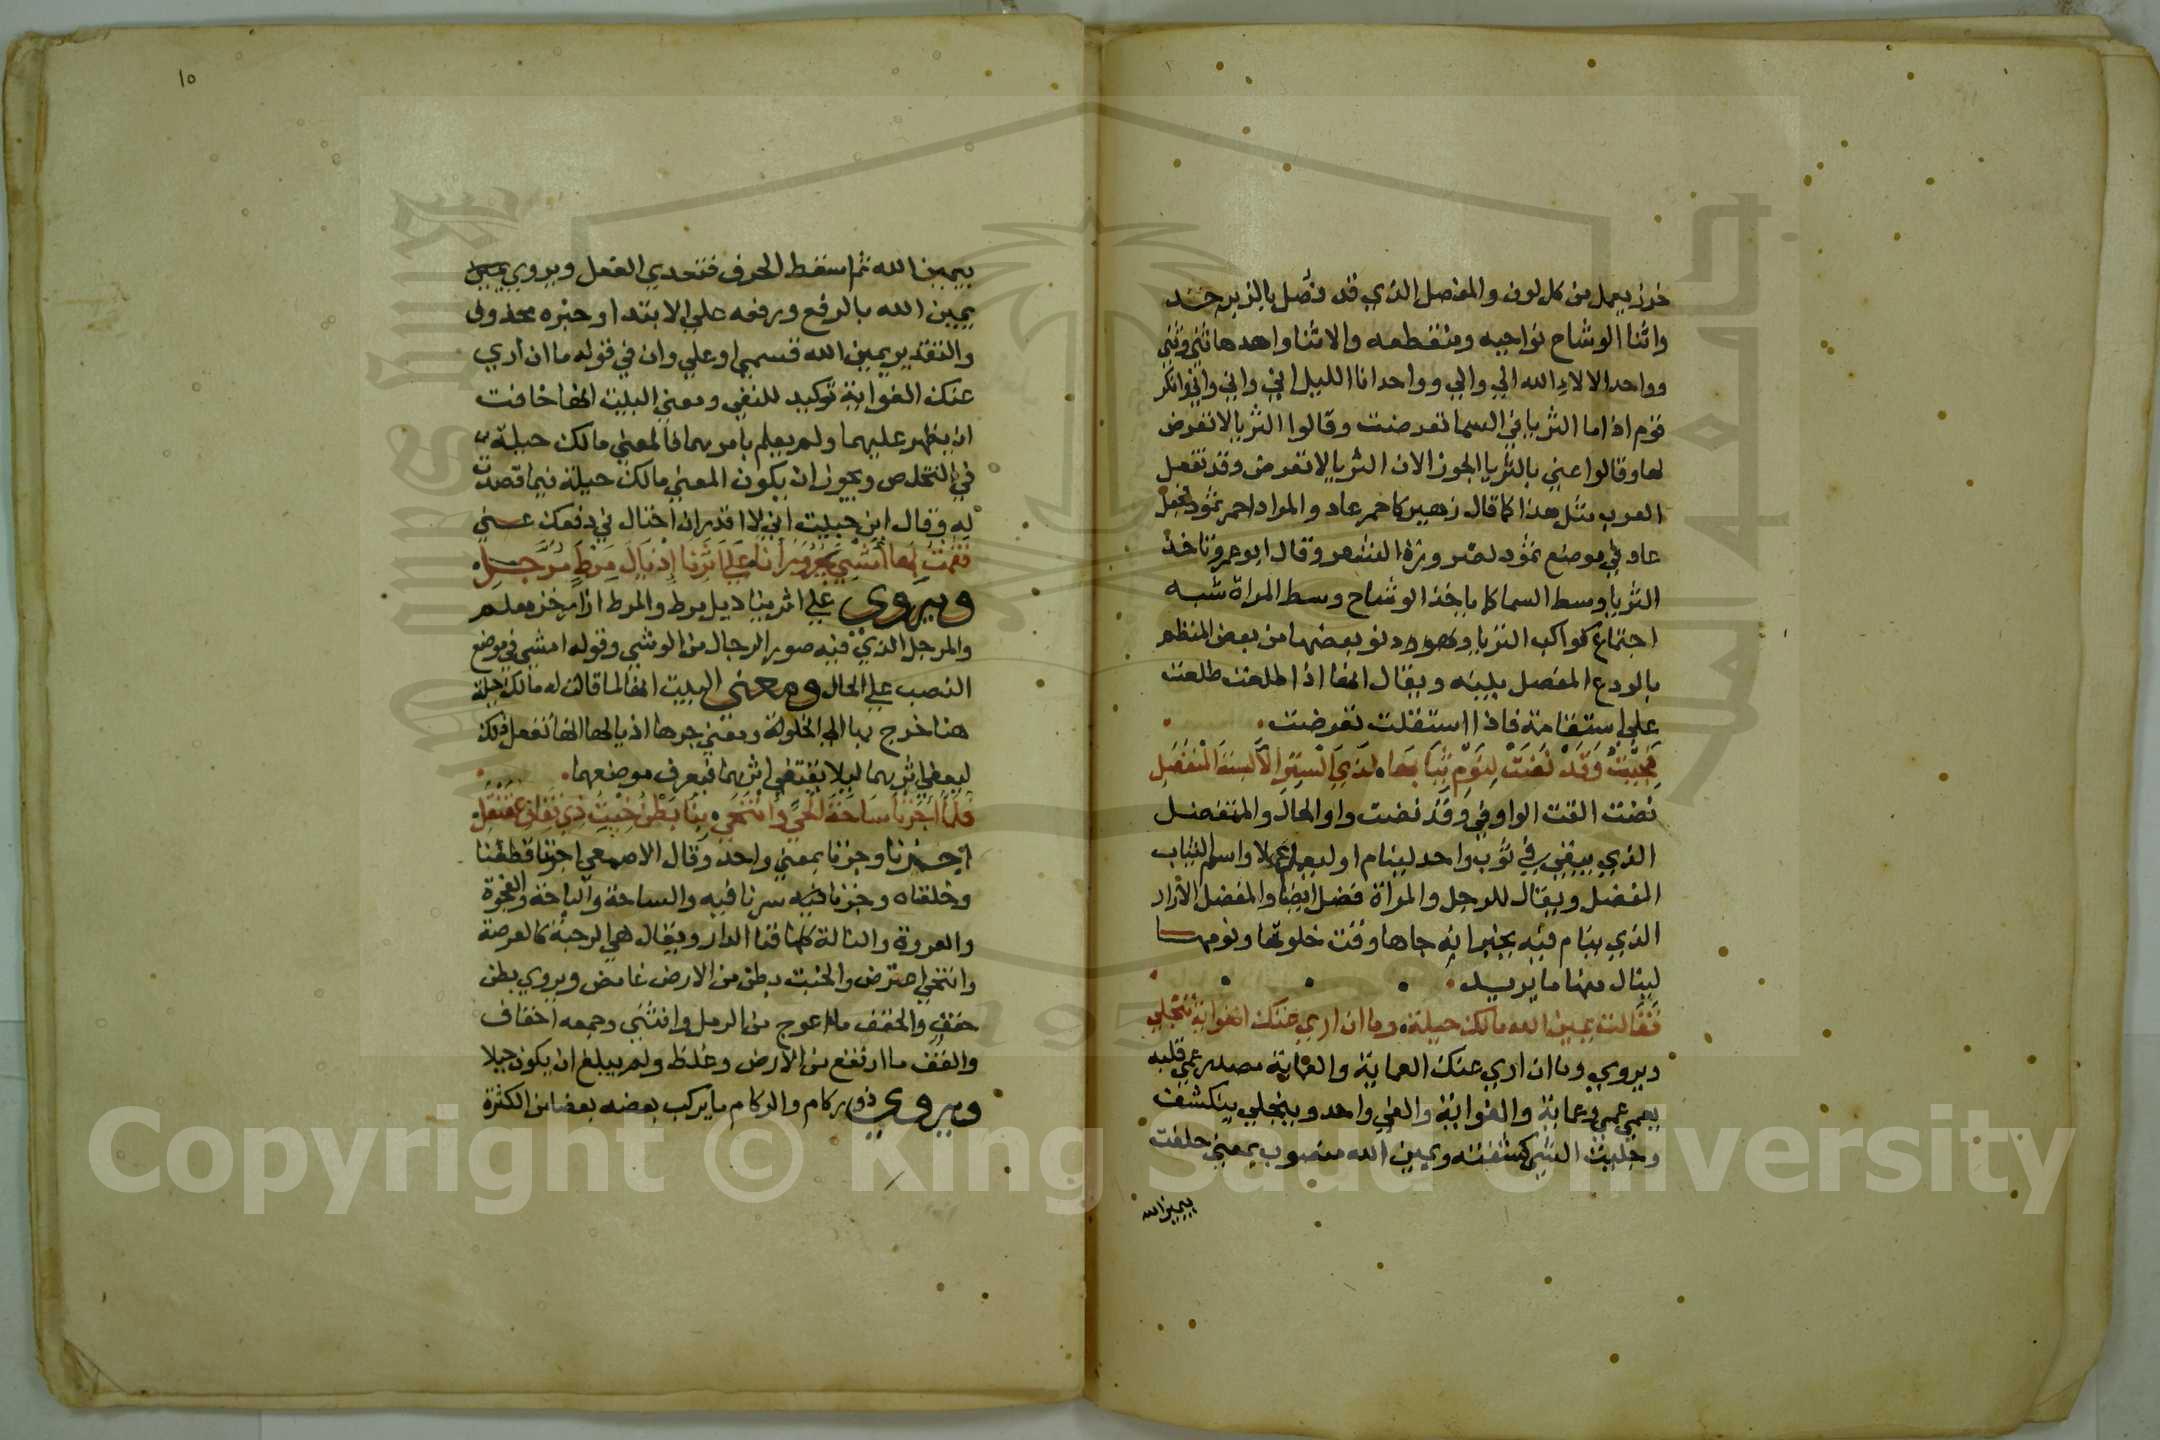 خرز يعمل من كل لون والمفصل الذي قد فصل بالزبرجد
واثنا الوشاح نواحيه ومنقطعه والاثنا واحدها ثني وثني
وواحد الالا الله الي والي وواحد انا الليل اني واني واني وانكر
قوم اذا ما الثريا في السما تعرضت وقالوا الثريا لا تعرض
لها وقالوا عني بالثريا الجوزا لان الثريا لا تعرض وقد تفعل
العرب مثل هذا كما قال زهير كاحمر عاد والمراد احمر ثمود فجعل
عاد في موضع ثمود لضرورة الشعر وقال ابو عمرو تاخذ
الثريا وسط السما كما ياخذ الوشاح وسط المراة شبه
اجتماع كواكب الثريا ودنو بعضها من بعض المنظم
بالودع المفصل بلينه ويقال انها اذا طلعت طلعت
علي استقامة فاذا استقلت تعرضت
فجيت وقد نضت لنوم ثيابها لدي الستر الا لبسة المتفضل
نضت القت الواو في وقد نضت واو الحال والمتفضل
الذي يبقي في ثوب واحد لينام او ليعمل عملا واسم الثياب
المفضل ويقال للرجل والمراة فضل ايضا والمفضل الازار
الذي ينام فيه يخبر انه جاها وقت خلوتها ونومها
لينال منها ما يريد
فقالت يمين الله مالك حيلة وما ان اري عنك الغواية تنجلي
ويروي وما ان اري عنك العماية والعماية مصدر عمي قلبه
يعمي عمي وعماية والغواية والغي واحد وينجلي ينكشف
وجليت الشي كشفته ويمين الله منصوب بمعني حلفت
بيمين الله
١٠
بيمين الله ثم اسقط الحرف فتعدي الفعل ويروي يمين
يمين الله بالرفع ورفعه علي الابتدا وخبره محذوف
والتقدير يمين الله قسمي او علي وان في قوله ما ان اري
عنك الغواية توكيد للنفي ومعني البيت انها خافت
ان يظهر عليهما ولم يعلم بامرهما فالمعني مالك حيلة
في التخلص ويجوز ان يكون المعني مالك حيلة فيما قصدت
له وقال ابن حبيب اني لا اقدر ان احتال في دفعك عني
فقمت بها امشي تجر وراءنا علي اثرنا اذيال مرط مرجل
ويروي علي اثرينا ذيل مرط والمرط ازار خز معلم
والمرجل الذي فيه صور الرجال من الوشي وقوله امشي في موضع
النصب علي الحال ومعني البيت انها لما قالت له مالك حيلة
هنا خرج بها الي الخلوة ومعني جرها اذيالها انها تفعل ذلك
ليعفي اثرهما ليلا يقتفي اثرهما فيعرف موضعهما
فلما اجزنا ساحة الحي وانتحي بنا بطن خبت ذي قفاف عقنقل
اجزنا وجزنا بمعني واحد وقال الاصمعي اجزنا قطعنا
وخلفناه وجزنا فيه سرنا فيه والساحة والباحة والفجوة
والعروة والنالة كلها فنا الدار ويقال هي الرحبة كالعرصة
وانتحي اعترض والخبت بطن من الارض غامض ويروي بطن
حقف والحقف ما اعوج من الرمل وانثني وجمعه احقاف
والقف ما ارتفع من الارض وغلظ ولم يبلغ ان يكون جبلا
ويروي ذي ركام والركام ما يركب بعضه بعضا من الكثرة
Copyright © King Saud University